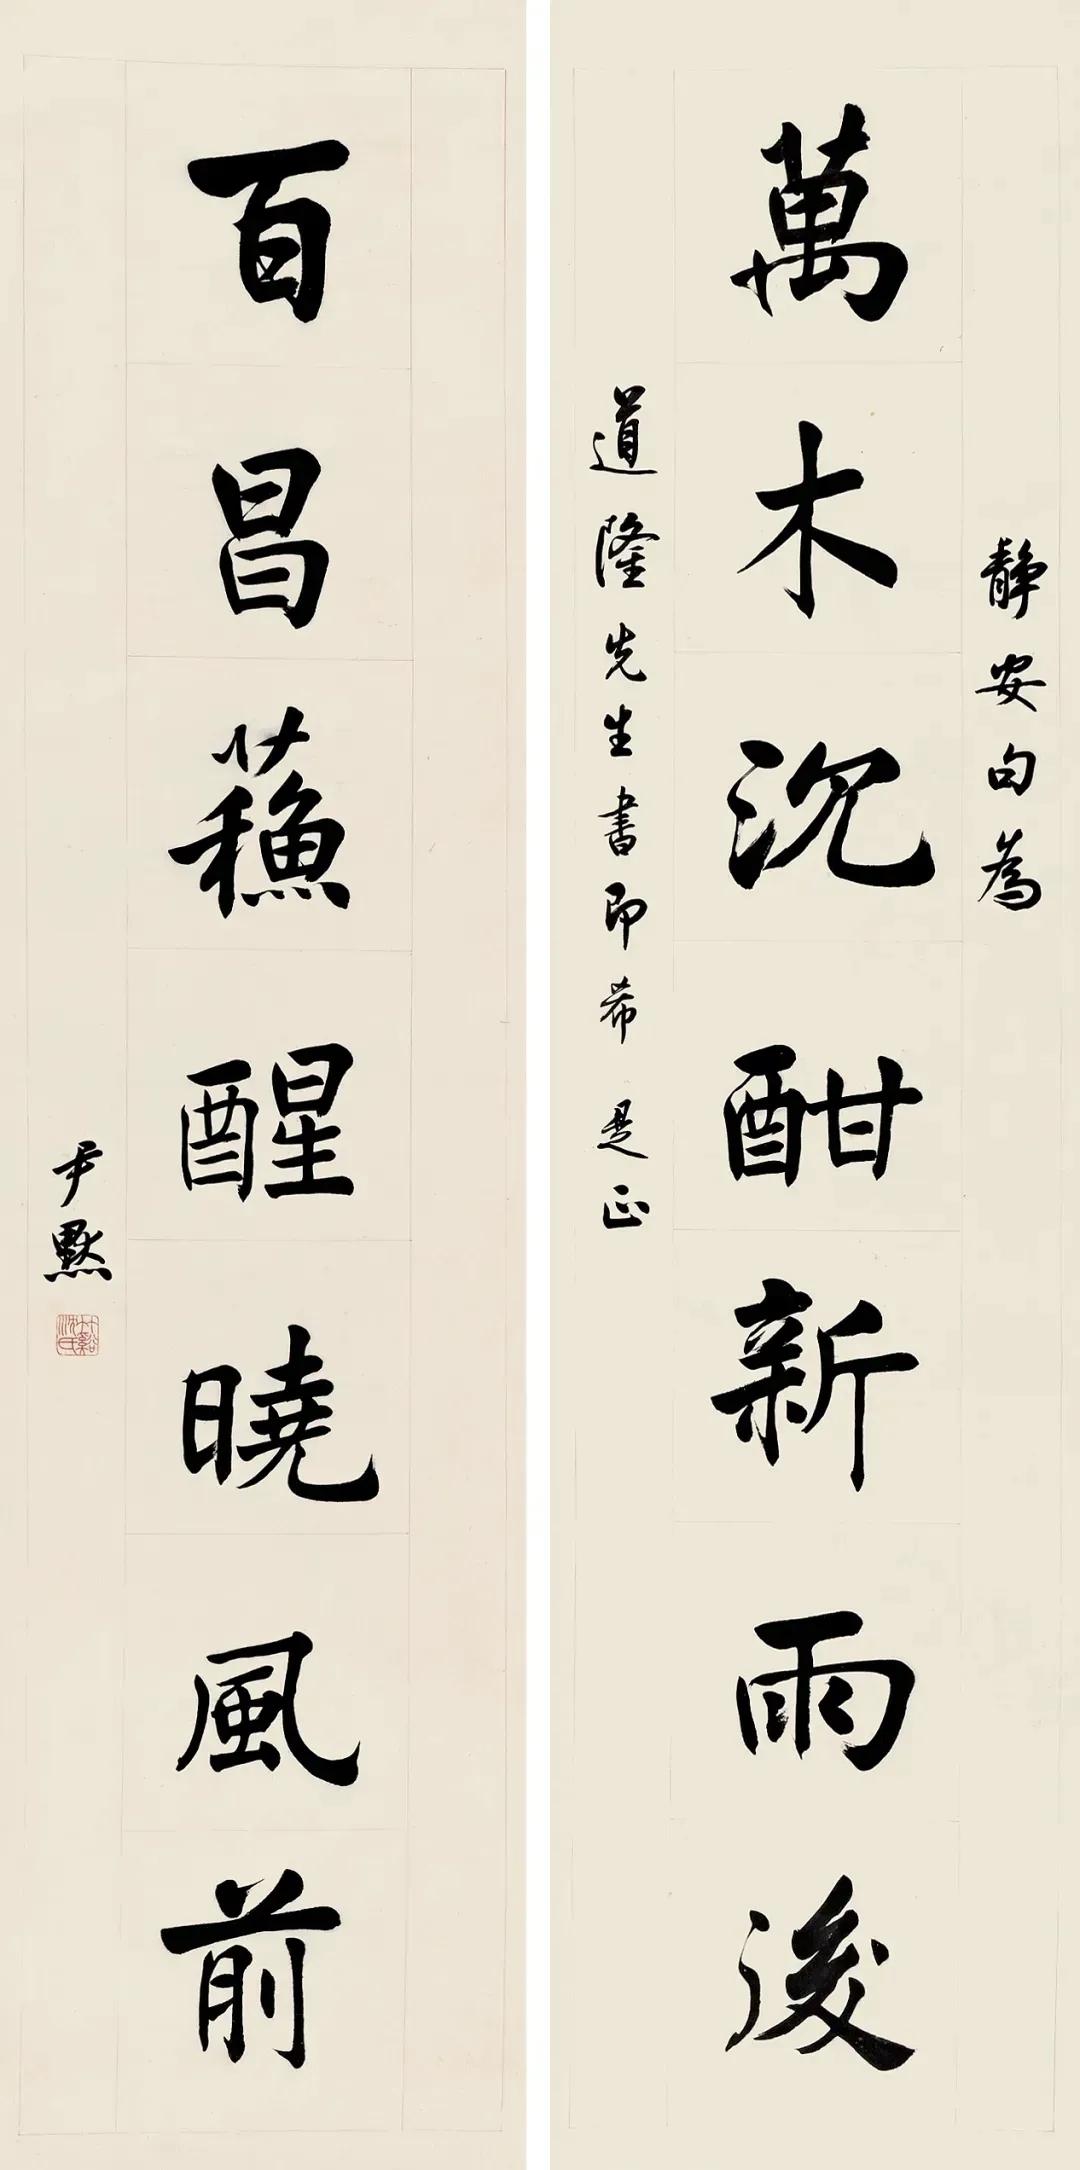 靜安句為
萬木沉酣新雨後
道隆先生書即希
是正
百昌蘓醒曉風前
尹默
竹谿沈氏